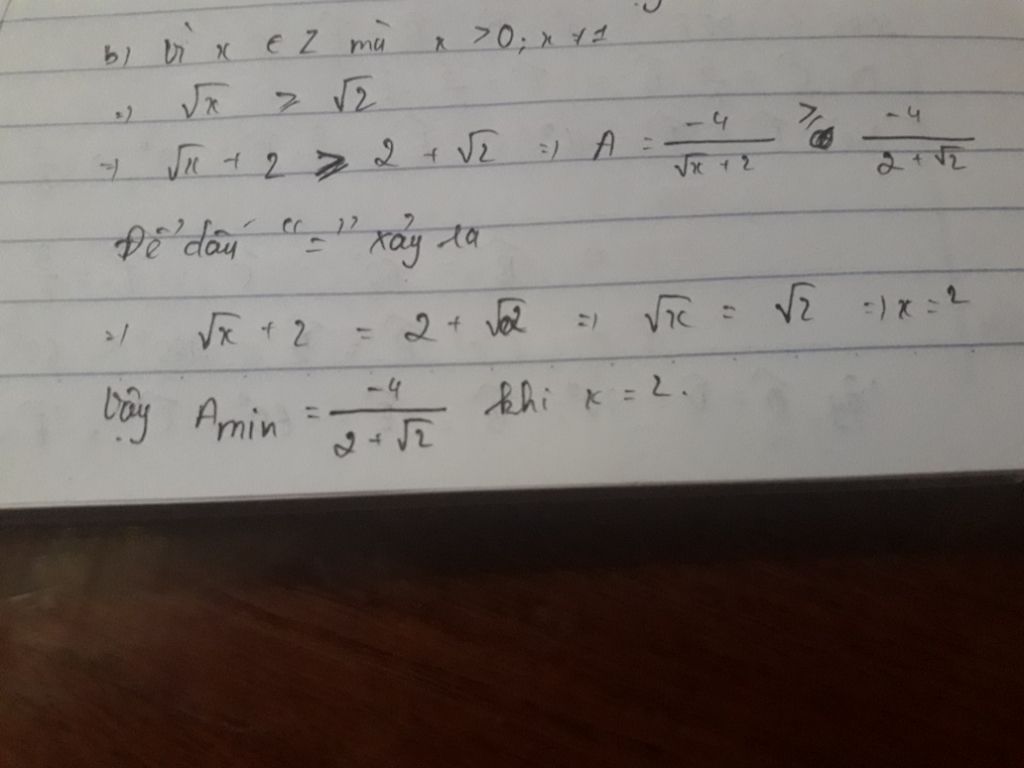 b) Vì x ∈ Z mà x > 0; x ≠ 1
=) √x ≥ √2
=) √x + 2 ≥ 2 + √2 =) A = -4/(√x + 2) ≥ -4/(2 + √2)
Để dấu "=" xảy ra
=) √x + 2 = 2 + √2 =) √x = √2 =) x = 2
Vậy Amin = -4/(2 + √2) khi x = 2.